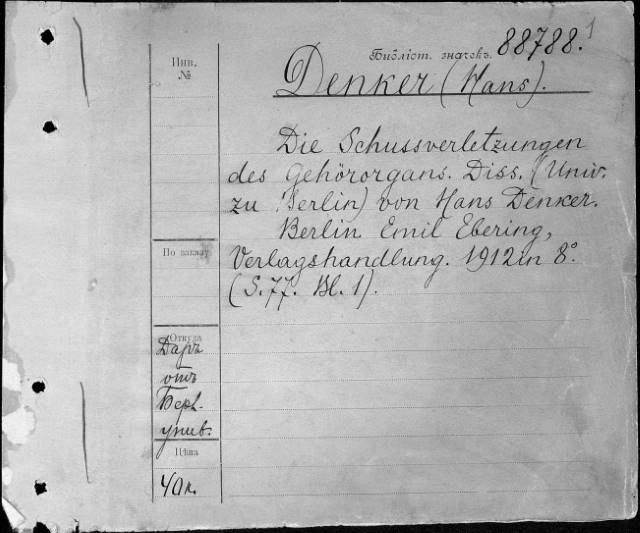 1
Библіот. значекъ. 88788.
Инв.
№
Denker (Hans).
Die Schussverletzungen
des Gehörorgans. Diss. (Univ.
zu Berlin) von Hans Denker.
Berlin. Emil Ebering,
Verlagshandlung. 1912 in 8°.
(S. 77. Bl. 1).
По заказу
Откуда
Даръ
отъ
Берл.
унив.
Цѣна
40 к.